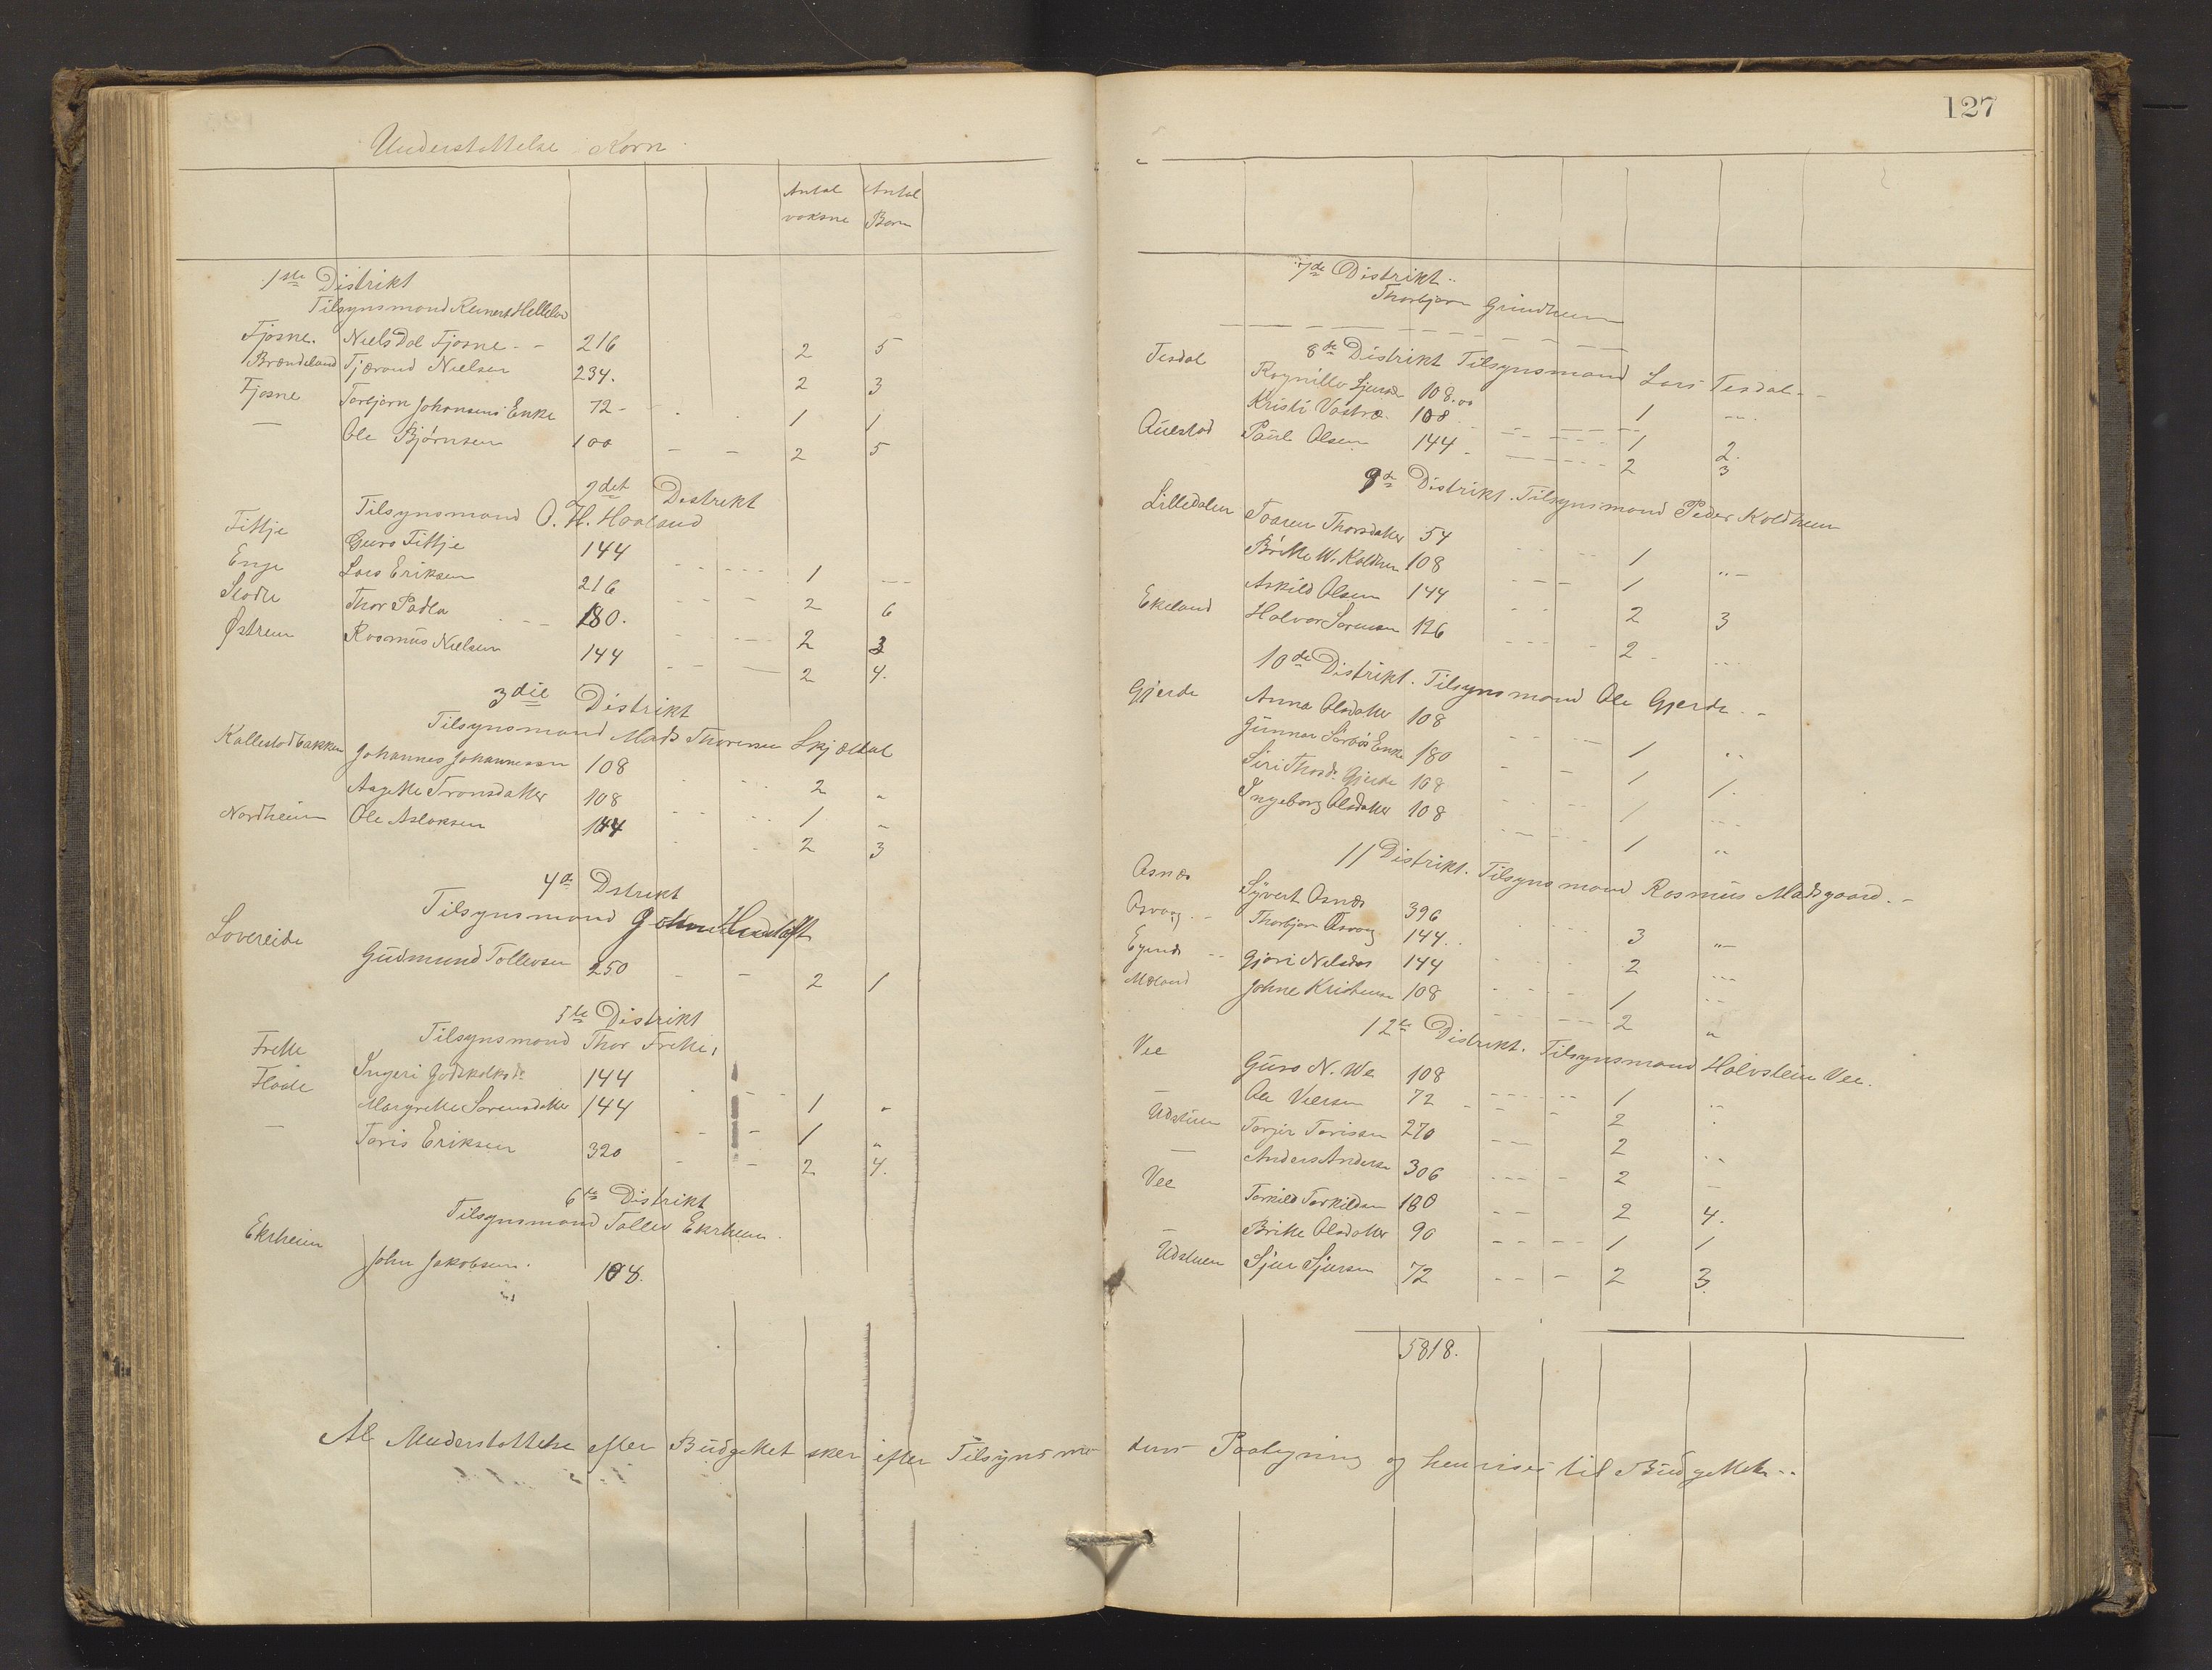 Understøttelse Korn
Antal voksne Antal Børn
1ste Distrikt
Tilsynsmand Reinert Helleland
Fjøsne. Niels Dal Fjøsne - - 216 2 5
Brændeland Tjærand Nielsen 234. 2 3
Fjøsne Torbjørn Johansens Enke 72 - 1 1
— Ole Bjørnsen 100 - - 2 5
2det Distrikt
Tilsynsmand O. H. Haaland
Fittje Guro Fittje 144 1 --
Enge Lars Eriksen 216 2 6
Thor Padla 180. 2 3
Østrem Rasmus Nielsen 144 2 4.
3die Distrikt
Tilsynsmand Mads Thorensen Skjældal
Kallestadbakken Johannes Johannessen 108 2 "
Aagathe Tronsdatter 108 1 "
Nordheim Ole Aslaksen 144 2 3
4de Dstrikt
Tilsynsmand
Lovereide Gudmund Tollevsen 250 - - 2 1
5te Distrikt
Tilsynsmand Thor Frette,
Frette Ingeri 144 1 "
Flaate Margrethe Sørensdatter 144 1 "
— Toris Eriksen 320 2 4.
6te Distrikt
Tilsynsmand Tollev Ekrheim.
Ekrheim John Jakobsen. 108.
Al Understøttelse efter Budgettet sker efter Tilsynsmæ
127
7de Distrikt..
Thorbjørn Grindheim
8de Distrikt Tilsynsmand Lars Tesdal - -
Tesdal Ragnilla Sjursdr 108.00 1 --
Kristi Vastræ 108 1 2.
Øuestad Paul Olsen 144 2 3
9de Distrikt. Tilsynsmand Peder Koldheim
Lilledalen Taaren Thorsdatter 54 1 "-
Britte W. Koldheim 108 1
Askild Olsen 144 2 3
Ekeland Halvor Sørensen 126 2 - ...
10de Distrikt. Tilsynsmand Ole Gjerde. -
Gjerde Anna Olsdatter 108 1 "
Gunnar Sørbøs Enke 180 1 1.
Siri Thorsdr Gjerde 108 1 ---
Ingeborg Olsdatter 108 1 "
11 Distrikt. Tilsynsmand Rasmus Madsgaard. -
Osnæs Syvert Osnæs 396 3 "-
Osvaag. - Thorbjørn Osvaag 144.. 2 ---
Gjøri Nelsdr 144 1 --
Mæland Johne Kristensen 108 2 "
12te Distrikt. Tilsynsmand Halvstein Vee.
Vee Guro N. We 108 1 ..
Ole Veersen 72 2 .
Udstuen Torger Torissen 270 2 ..
— Anders Andersen 306 2 --
Vee Torkild Torkildsen 180 2 4.
Britte Olsdatter 90 1 1
Udstuen Sjur Sjursen 72 2 3.
5818.
dens Paategning og henvises til Budgettet..